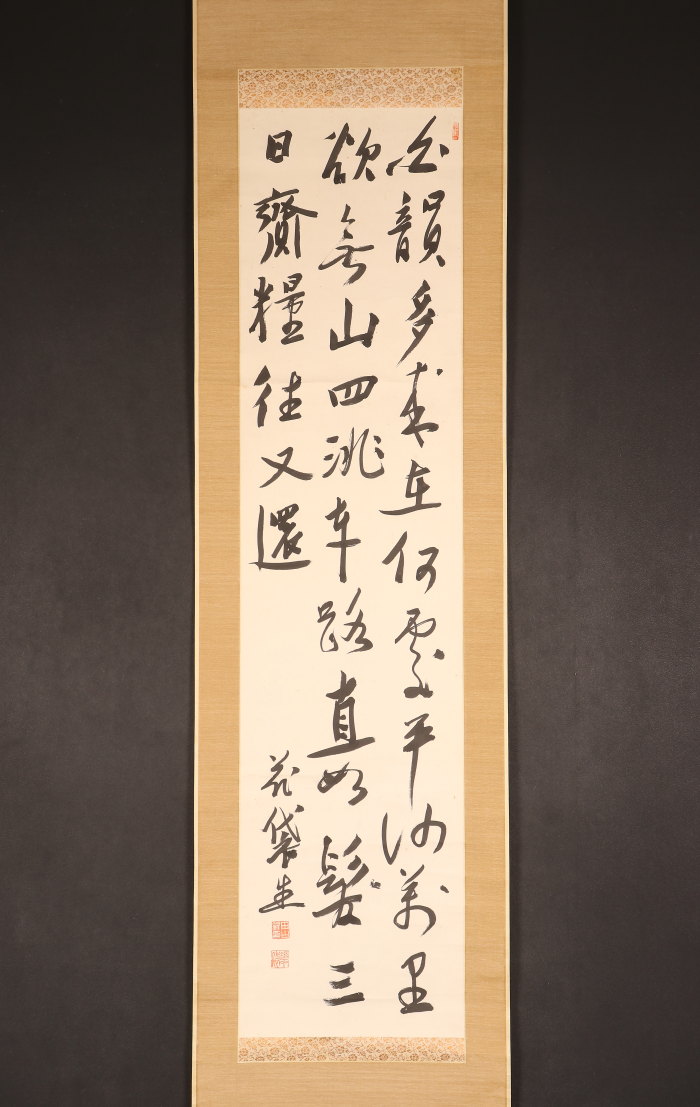 白韻多在何處平沙萬里
欲無山四洮車路直如髮三
日齎糧往又還
花袋生